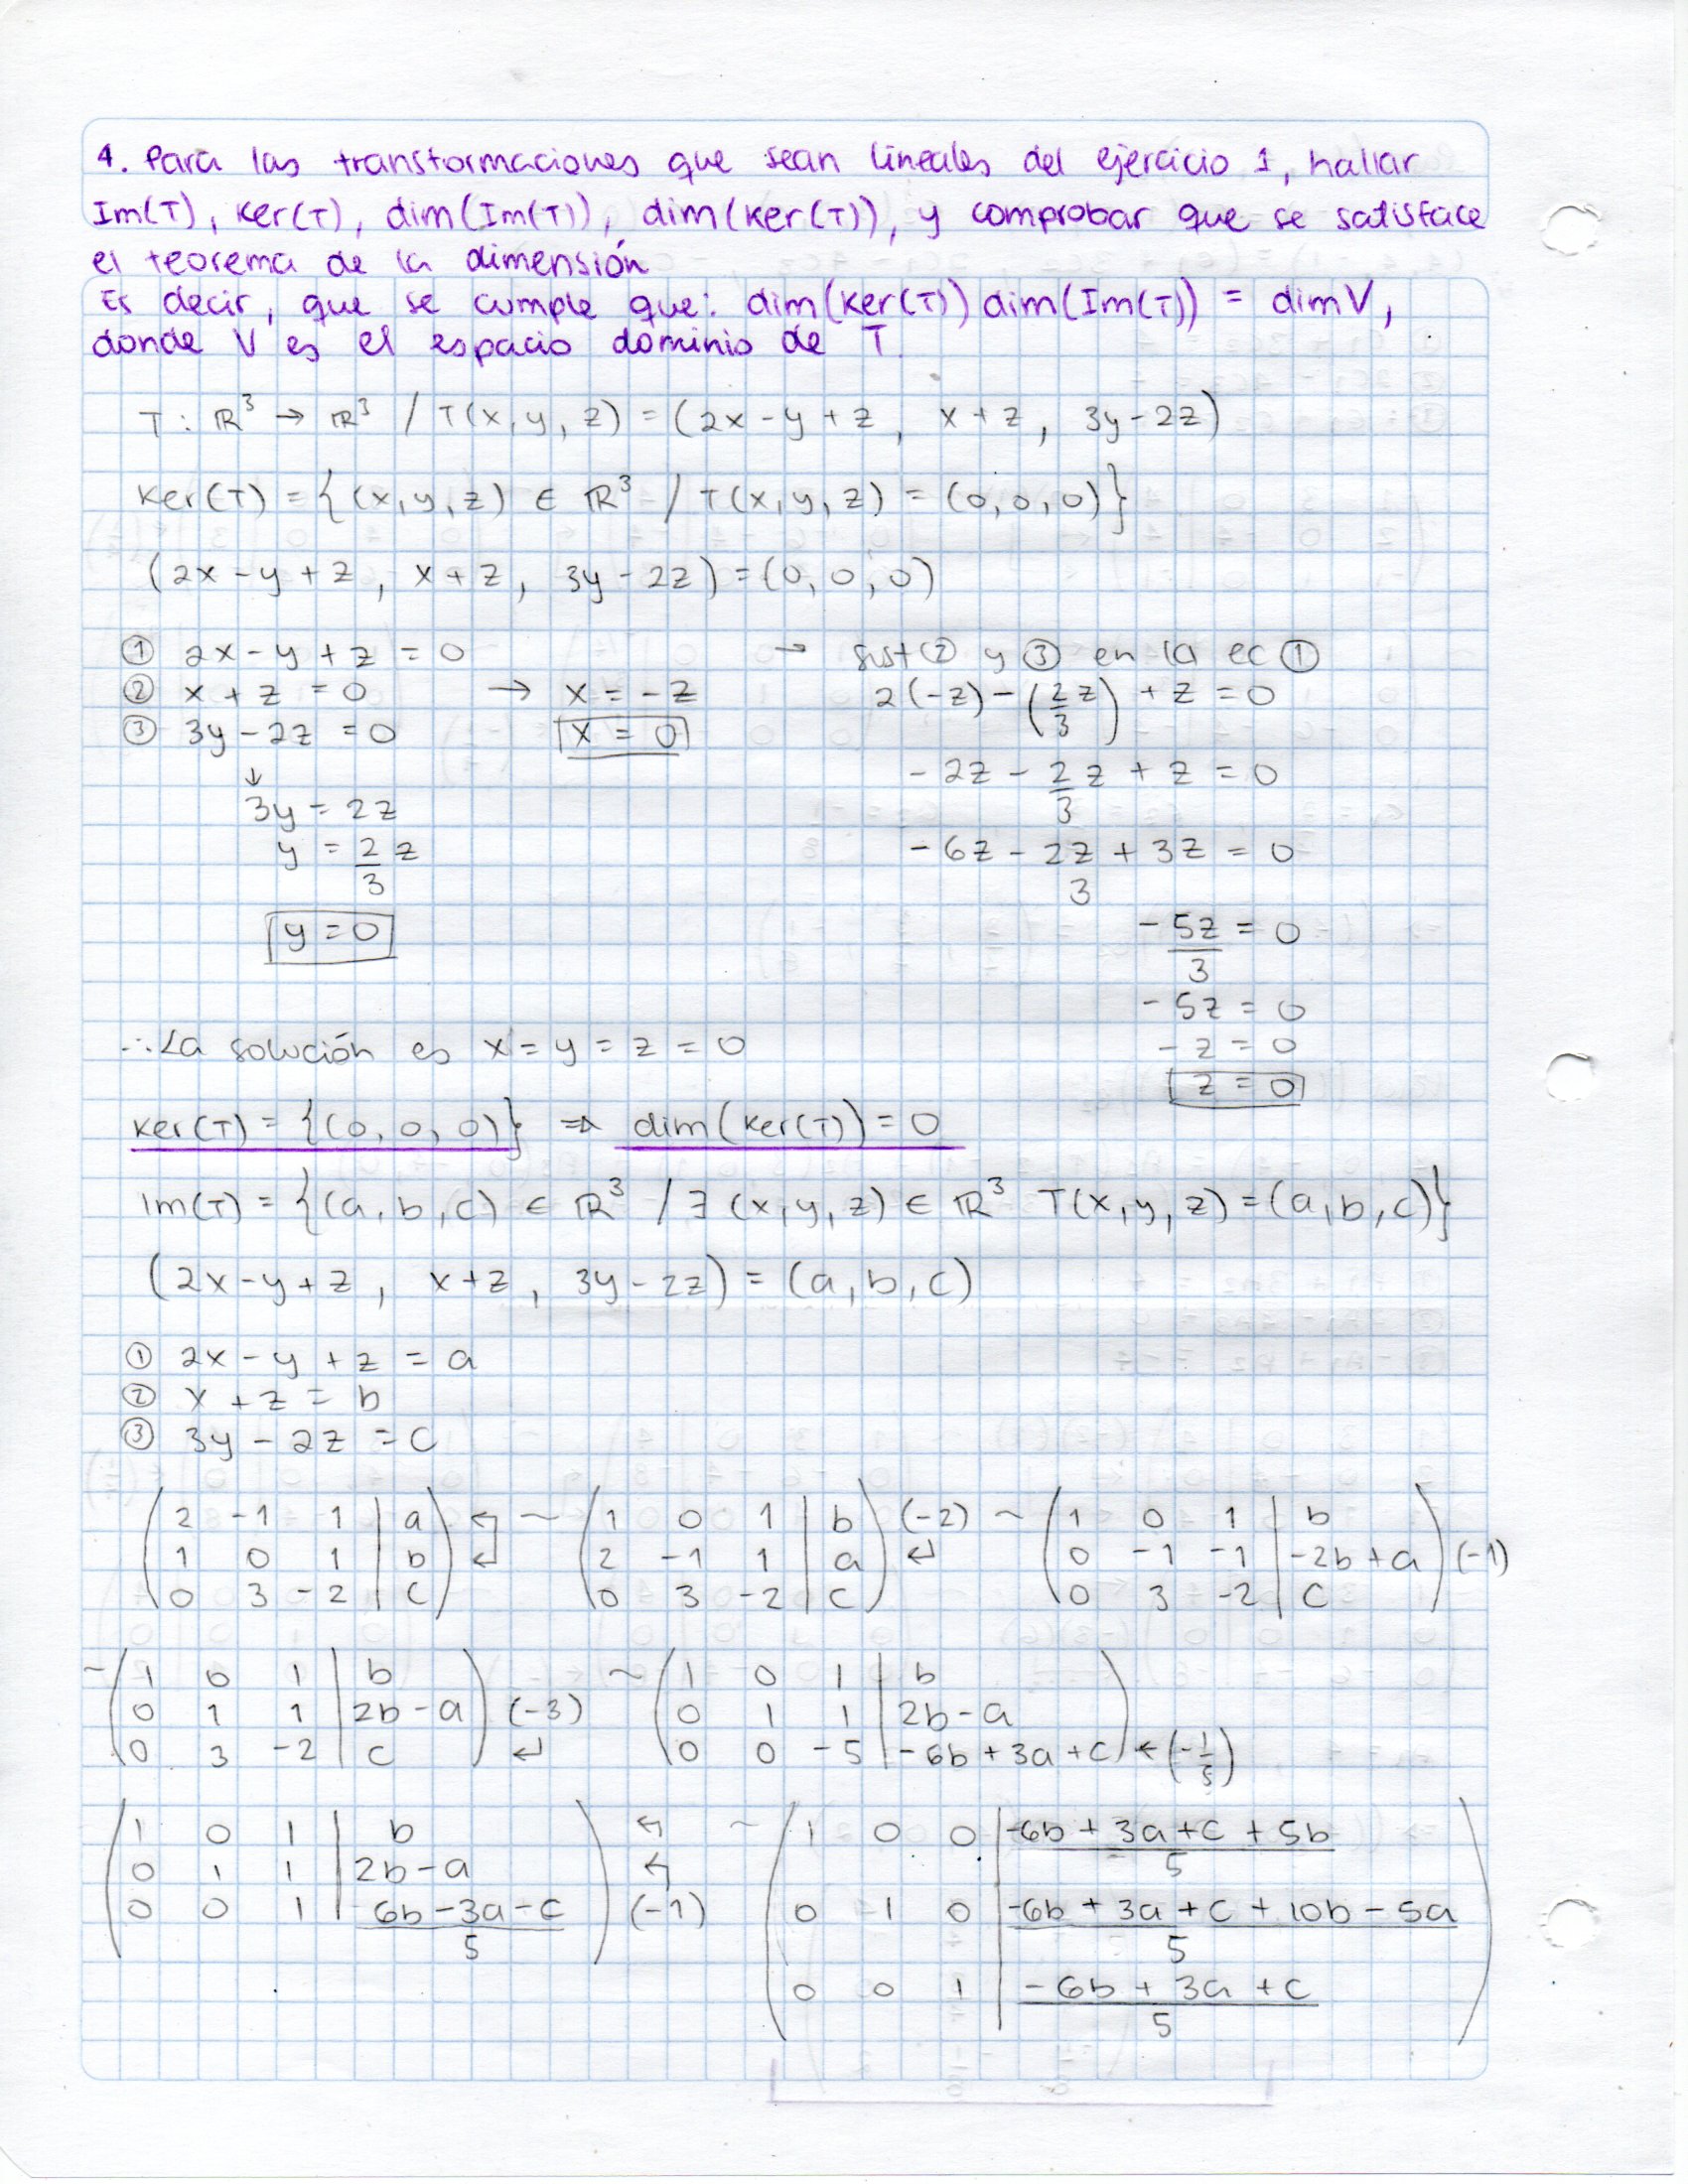 4. Para las transformaciones que sean lineales del ejercicio 1, hallar
Im(T), Ker(T), dim(Im(T)), dim(Ker(T)), y comprobar que se satisface
el teorema de la dimensión
Es decir, que se cumple que: dim(Ker(T)) dim(Im(T)) = dim V,
donde V es el espacio dominio de T.
T: ℝ³ → ℝ³ / T(x, y, z) = (2x - y + z, x + z, 3y - 2z)
Ker(T) = {(x, y, z) ∈ ℝ³ / T(x, y, z) = (0, 0, 0)}
(2x - y + z, x + z, 3y - 2z) = (0, 0, 0)
① 2x - y + z = 0
② x + z = 0 → x = -z
x = 0
③ 3y - 2z = 0
↓
3y = 2z
y = 2/3 z
y = 0
→ sust ② y ③ en la ec ①
2(-z) - (2/3 z) + z = 0
-2z - 2/3 z + z = 0
(-6z - 2z + 3z)/3 = 0
-5z/3 = 0
-5z = 0
-z = 0
z = 0
∴ La solución es x = y = z = 0
Ker(T) = {(0, 0, 0)} ⇒ dim(Ker(T)) = 0
Im(T) = {(a, b, c) ∈ ℝ³ / ∃ (x, y, z) ∈ ℝ³ T(x, y, z) = (a, b, c)}
(2x - y + z, x + z, 3y - 2z) = (a, b, c)
① 2x - y + z = a
② x + z = b
③ 3y - 2z = c
2 -1 1 | a ↰ ~ 1 0 1 | b (-2) ~ 1 0 1 | b
1 0 1 | b ↲ 2 -1 1 | a ↲ 0 -1 -1 | -2b + a (-1)
0 3 -2 | c 0 3 -2 | c 0 3 -2 | c
~ 1 0 1 | b ~ 1 0 1 | b
0 1 1 | 2b - a (-3) 0 1 1 | 2b - a
0 3 -2 | c ↲ 0 0 -5 | -6b + 3a + c ← (-1/5)
1 0 1 | b ↰ ~ 1 0 0 | (-6b + 3a + c + 5b)/5
0 1 1 | 2b - a ↰ 0 1 0 | (-6b + 3a + c + 10b - 5a)/5
0 0 1 | (6b - 3a - c)/5 (-1) 0 0 1 | (-6b + 3a + c)/5